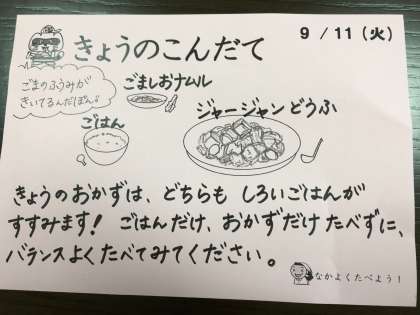 きょうのこんだて
9/11(火)
ごまのふうみが
きいてるんだぽん。
ごましおナムル
ごはん
ジャージャンどうふ
きょうのおかずは、どちらも しろいごはんが
すすみます! ごはんだけ、おかずだけたべずに、
バランスよくたべてみてください。
なかよくたべよう!